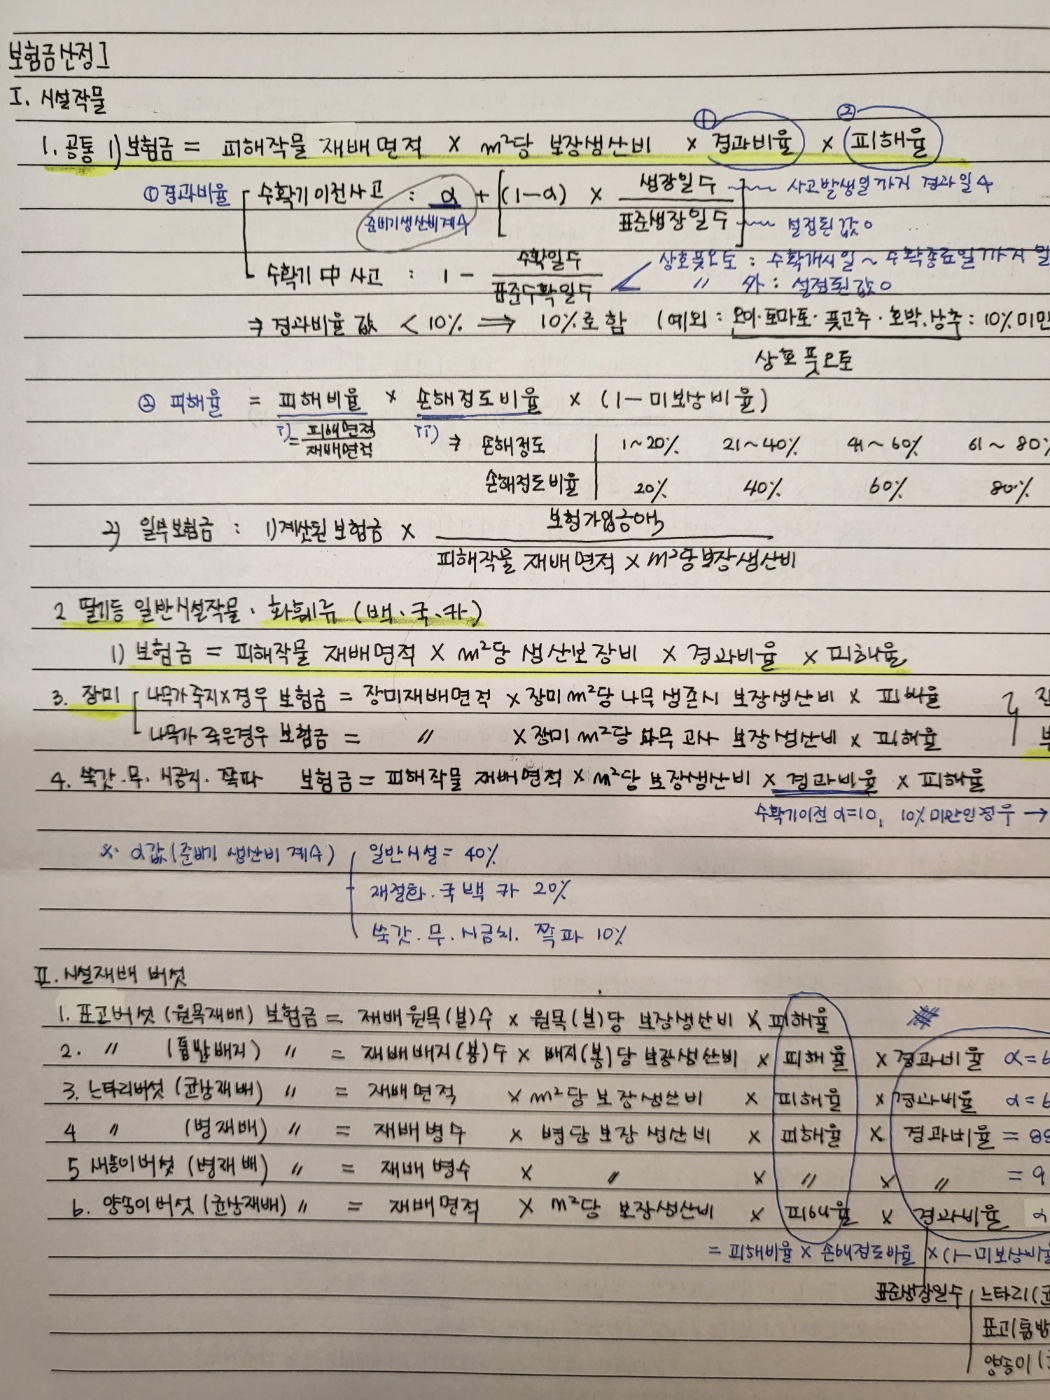 보험금산정 I
I. 시설작물
1. 공통 1) 보험금 = 피해작물 재배면적 × m²당 보장생산비 × ① 경과비율 × ② 피해율
① 경과비율 수확기이전사고 : α + [(1-α) × 생장일수 / 표준생장일수] 사고발생일까지 경과일수
준비기생산비계수 설정된값 o
수확기 中 사고 : 1 - 수확일수 / 표준수확일수 상호풋오토 : 수확개시일 ~ 수확종료일까지
〃 외 : 설정된값 o
⇒ 경과비율 값 < 10% ⇒ 10%로 함 (예외 : 오이·토마토·풋고추·호박.상추 : 10%미만
상호풋오토
② 피해율 = 피해비율 × 손해정도비율 × (1-미보상비율)
i) = 피해면적 / 재배면적 ii) ⇒ 손해정도 1~20% 21~40% 41~60% 61~80%
손해정도비율 20% 40% 60% 80%
2) 일부보험금 : 1)계산된 보험금 × 보험가입금액 / 피해작물 재배면적 × m²당보장생산비
2 딸기등 일반시설작물 · 화훼류 (백·국·카)
1) 보험금 = 피해작물 재배면적 × m²당 생산보장비 × 경과비율 × 피해율
3. 장미 나무가죽지×경우 보험금 = 장미재배면적 × 장미 m²당 나무 생존시 보장생산비 × 피해율
나무가 죽은경우 보험금 = 〃 × 장미 m²당 나무 고사 보장생산비 × 피해율
4. 쑥갓.무.시금치.쪽파 보험금 = 피해작물 재배면적 × m²당 보장생산비 × 경과비율 × 피해율
수확기이전 α=10, 10%미만인정우 →
※ α값 (준비기 생산비 계수) 일반시설 = 40%
재절화.국 백 카 20%
쑥갓.무.시금치. 쪽파 10%
II. 시설재배 버섯
1. 표고버섯 (원목재배) 보험금 = 재배원목(본)수 × 원목(본)당 보장생산비 × 피해율
2. 〃 (톱밥배지) 〃 = 재배배지(봉)수 × 배지(봉)당 보장생산비 × 피해율 × 경과비율 α=6
3. 느타리버섯 (균상재배) 〃 = 재배면적 × m²당 보장생산비 × 피해율 × 경과비율 α=6
4 〃 (병재배) 〃 = 재배병수 × 병당 보장 생산비 × 피해율 × 경과비율 = 88
5 새송이버섯 (병재배) 〃 = 재배 병수 × 〃 × 〃 × 〃 = 9
6. 양송이버섯 (균상재배) 〃 = 재배면적 × m²당 보장생산비 × 피해율 × 경과비율 α
= 피해비율 × 손해정도비율 × (1-미보상비율
표준생장일수 느타리(균
표고(톱밥
양송이 (